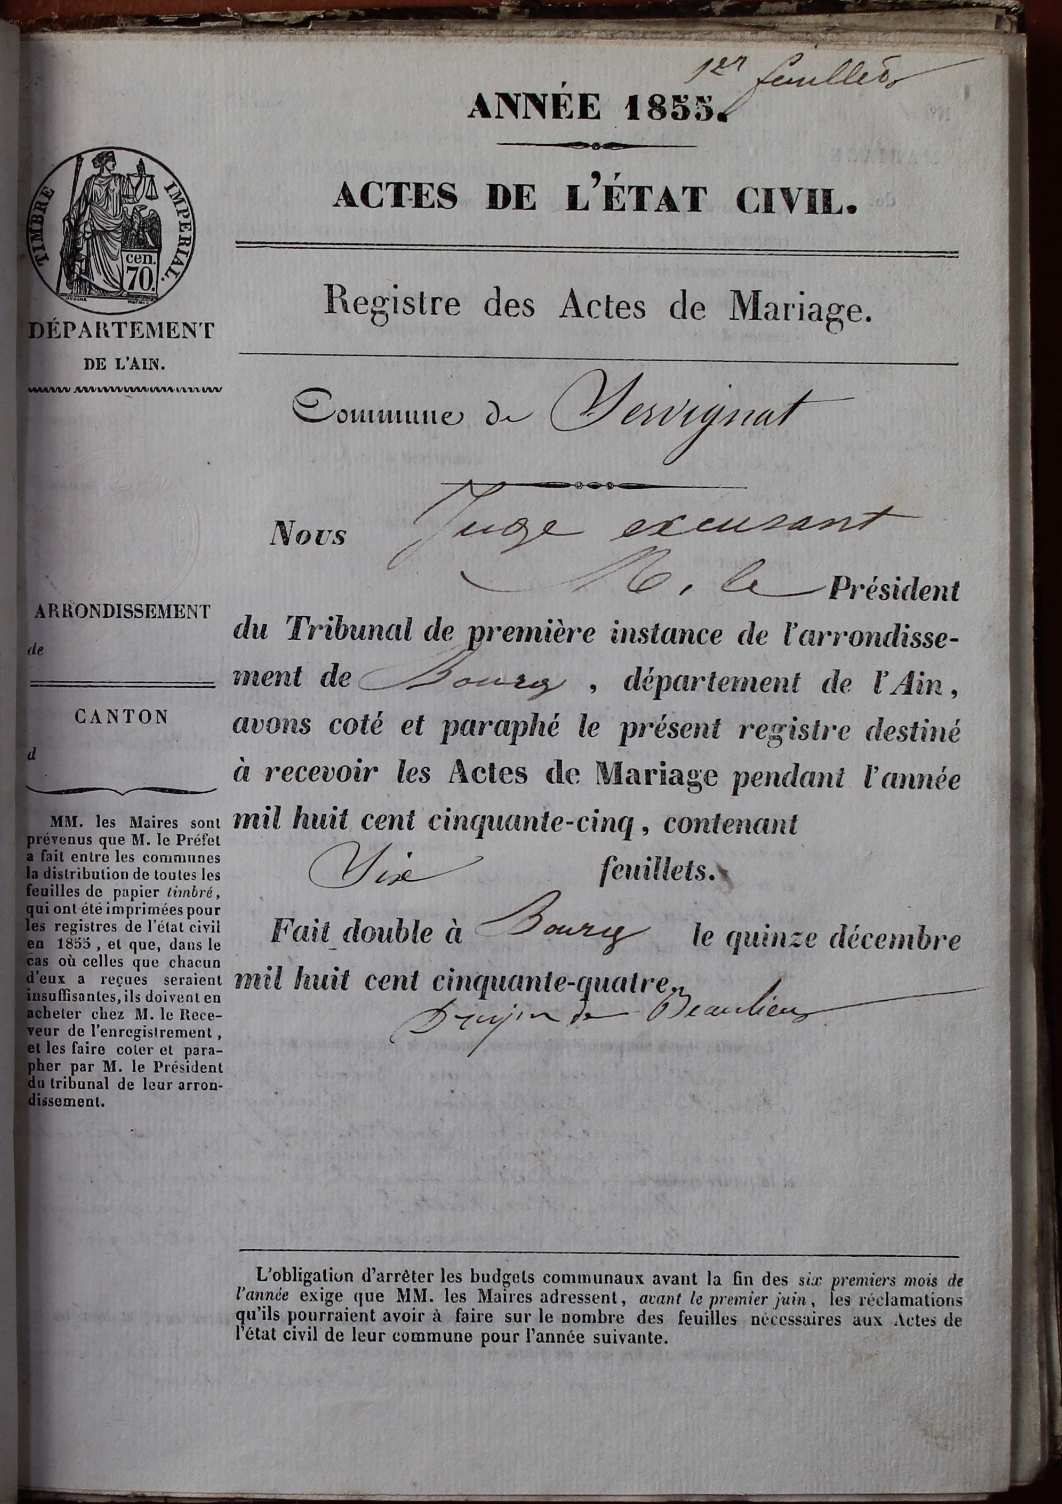 1er feuillet
ANNÉE 1855.
ACTES DE L'ÉTAT CIVIL.
Registre des Actes de Mariage.
TIMBRE IMPERIAL.
cen.
70.
DÉPARTEMENT
DE L'AIN.
Commune de Servignat
Nous Juge excusant
M. le Président
du Tribunal de première instance de l'arrondisse-
ment de Bourg, département de l'Ain,
avons coté et paraphé le présent registre destiné
à recevoir les Actes de Mariage pendant l'année
mil huit cent cinquante-cinq, contenant
Six feuillets.
Fait double à Bourg le quinze décembre
mil huit cent cinquante-quatre.
de Beaulieu
ARRONDISSEMENT
de
CANTON
d
MM. les Maires sont
prévenus que M. le Préfet
a fait entre les communes
la distribution de toutes les
feuilles de papier timbré,
qui ont été imprimées pour
les registres de l'état civil
en 1855, et que, dans le
cas où celles que chacun
d'eux a reçues seraient
insuffisantes, ils doivent en
acheter chez M. le Rece-
veur de l'enregistrement,
et les faire coter et para-
pher par M. le Président
du tribunal de leur arron-
dissement.
L'obligation d'arrêter les budgets communaux avant la fin des six premiers mois de
l'année exige que MM. les Maires adressent, avant le premier juin, les réclamations
qu'ils pourraient avoir à faire sur le nombre des feuilles nécessaires aux Actes de
l'état civil de leur commune pour l'année suivante.